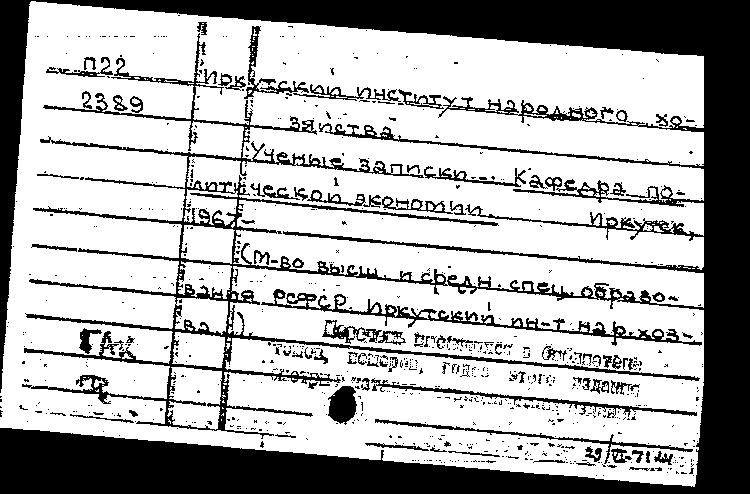 П22
Иркутский институт народного хо-
2389
зяйства.
Ученые записки... Кафедра по-
литической экономии. Иркутск,
1967-
(М-во высш. и средн. спец. образо-
вания РСФСР. Иркутский ин-т нар. хоз-
ва.).
ГАК
Перечень имеющихся в библиотеке
томов, номеров, годов этого издания
смотри в
29/VI-71